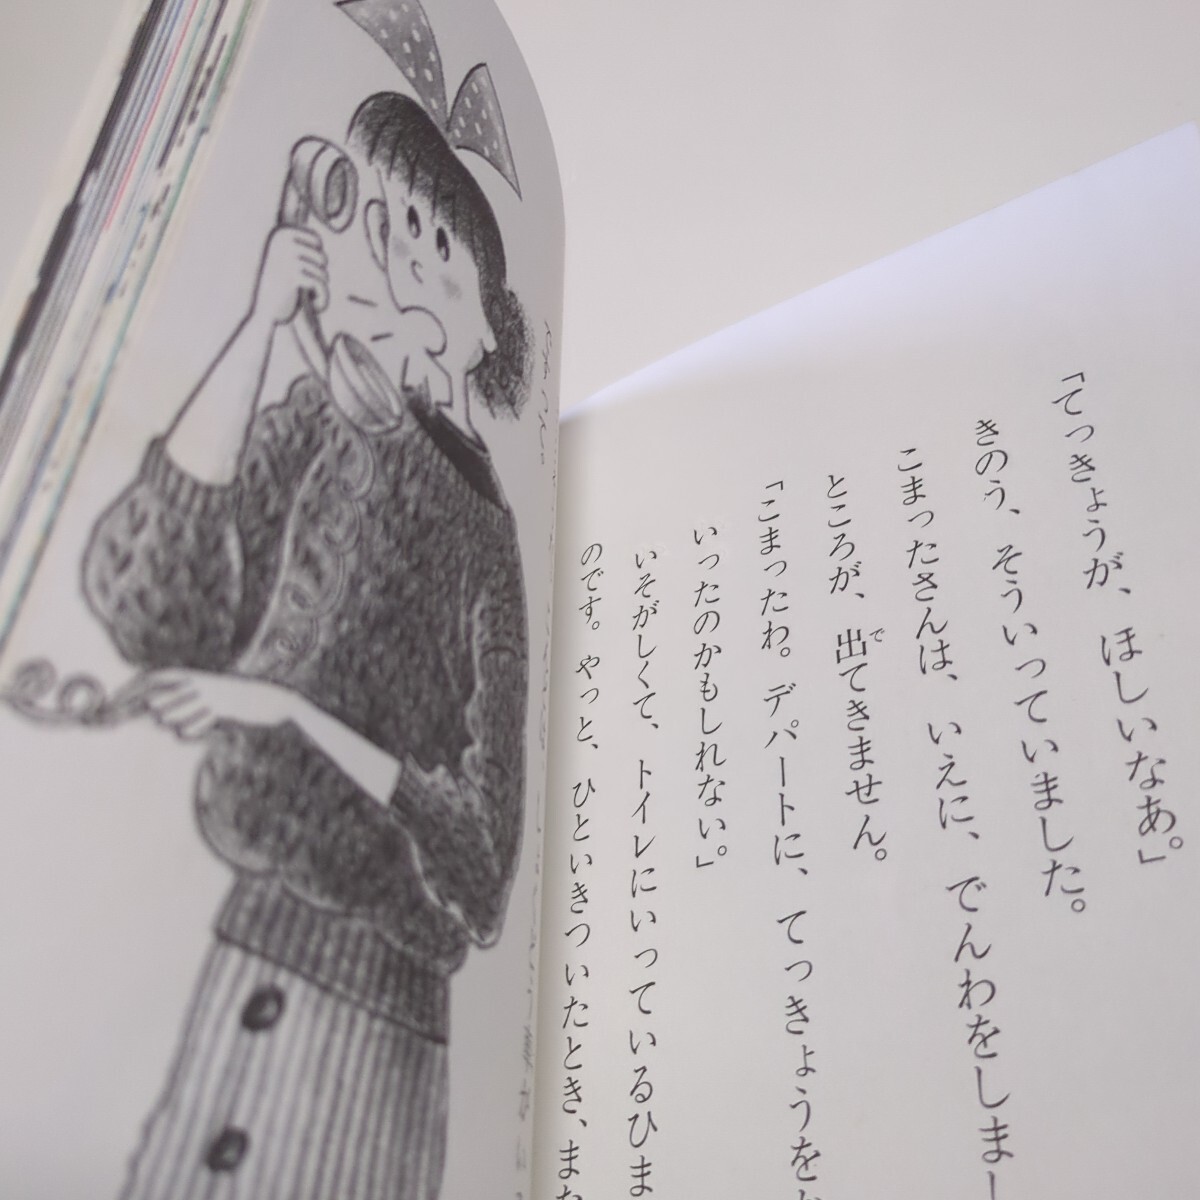 「てっきょうが、ほしいなあ。」
きのう、そういっていました。
こまったさんは、いえに、でんわをしまし
ところが、出てきません。
「こまったわ。デパートに、てっきょうをか
いったのかもしれない。」
いそがしくて、トイレにいっているひま
のです。やっと、ひといきついたとき、また